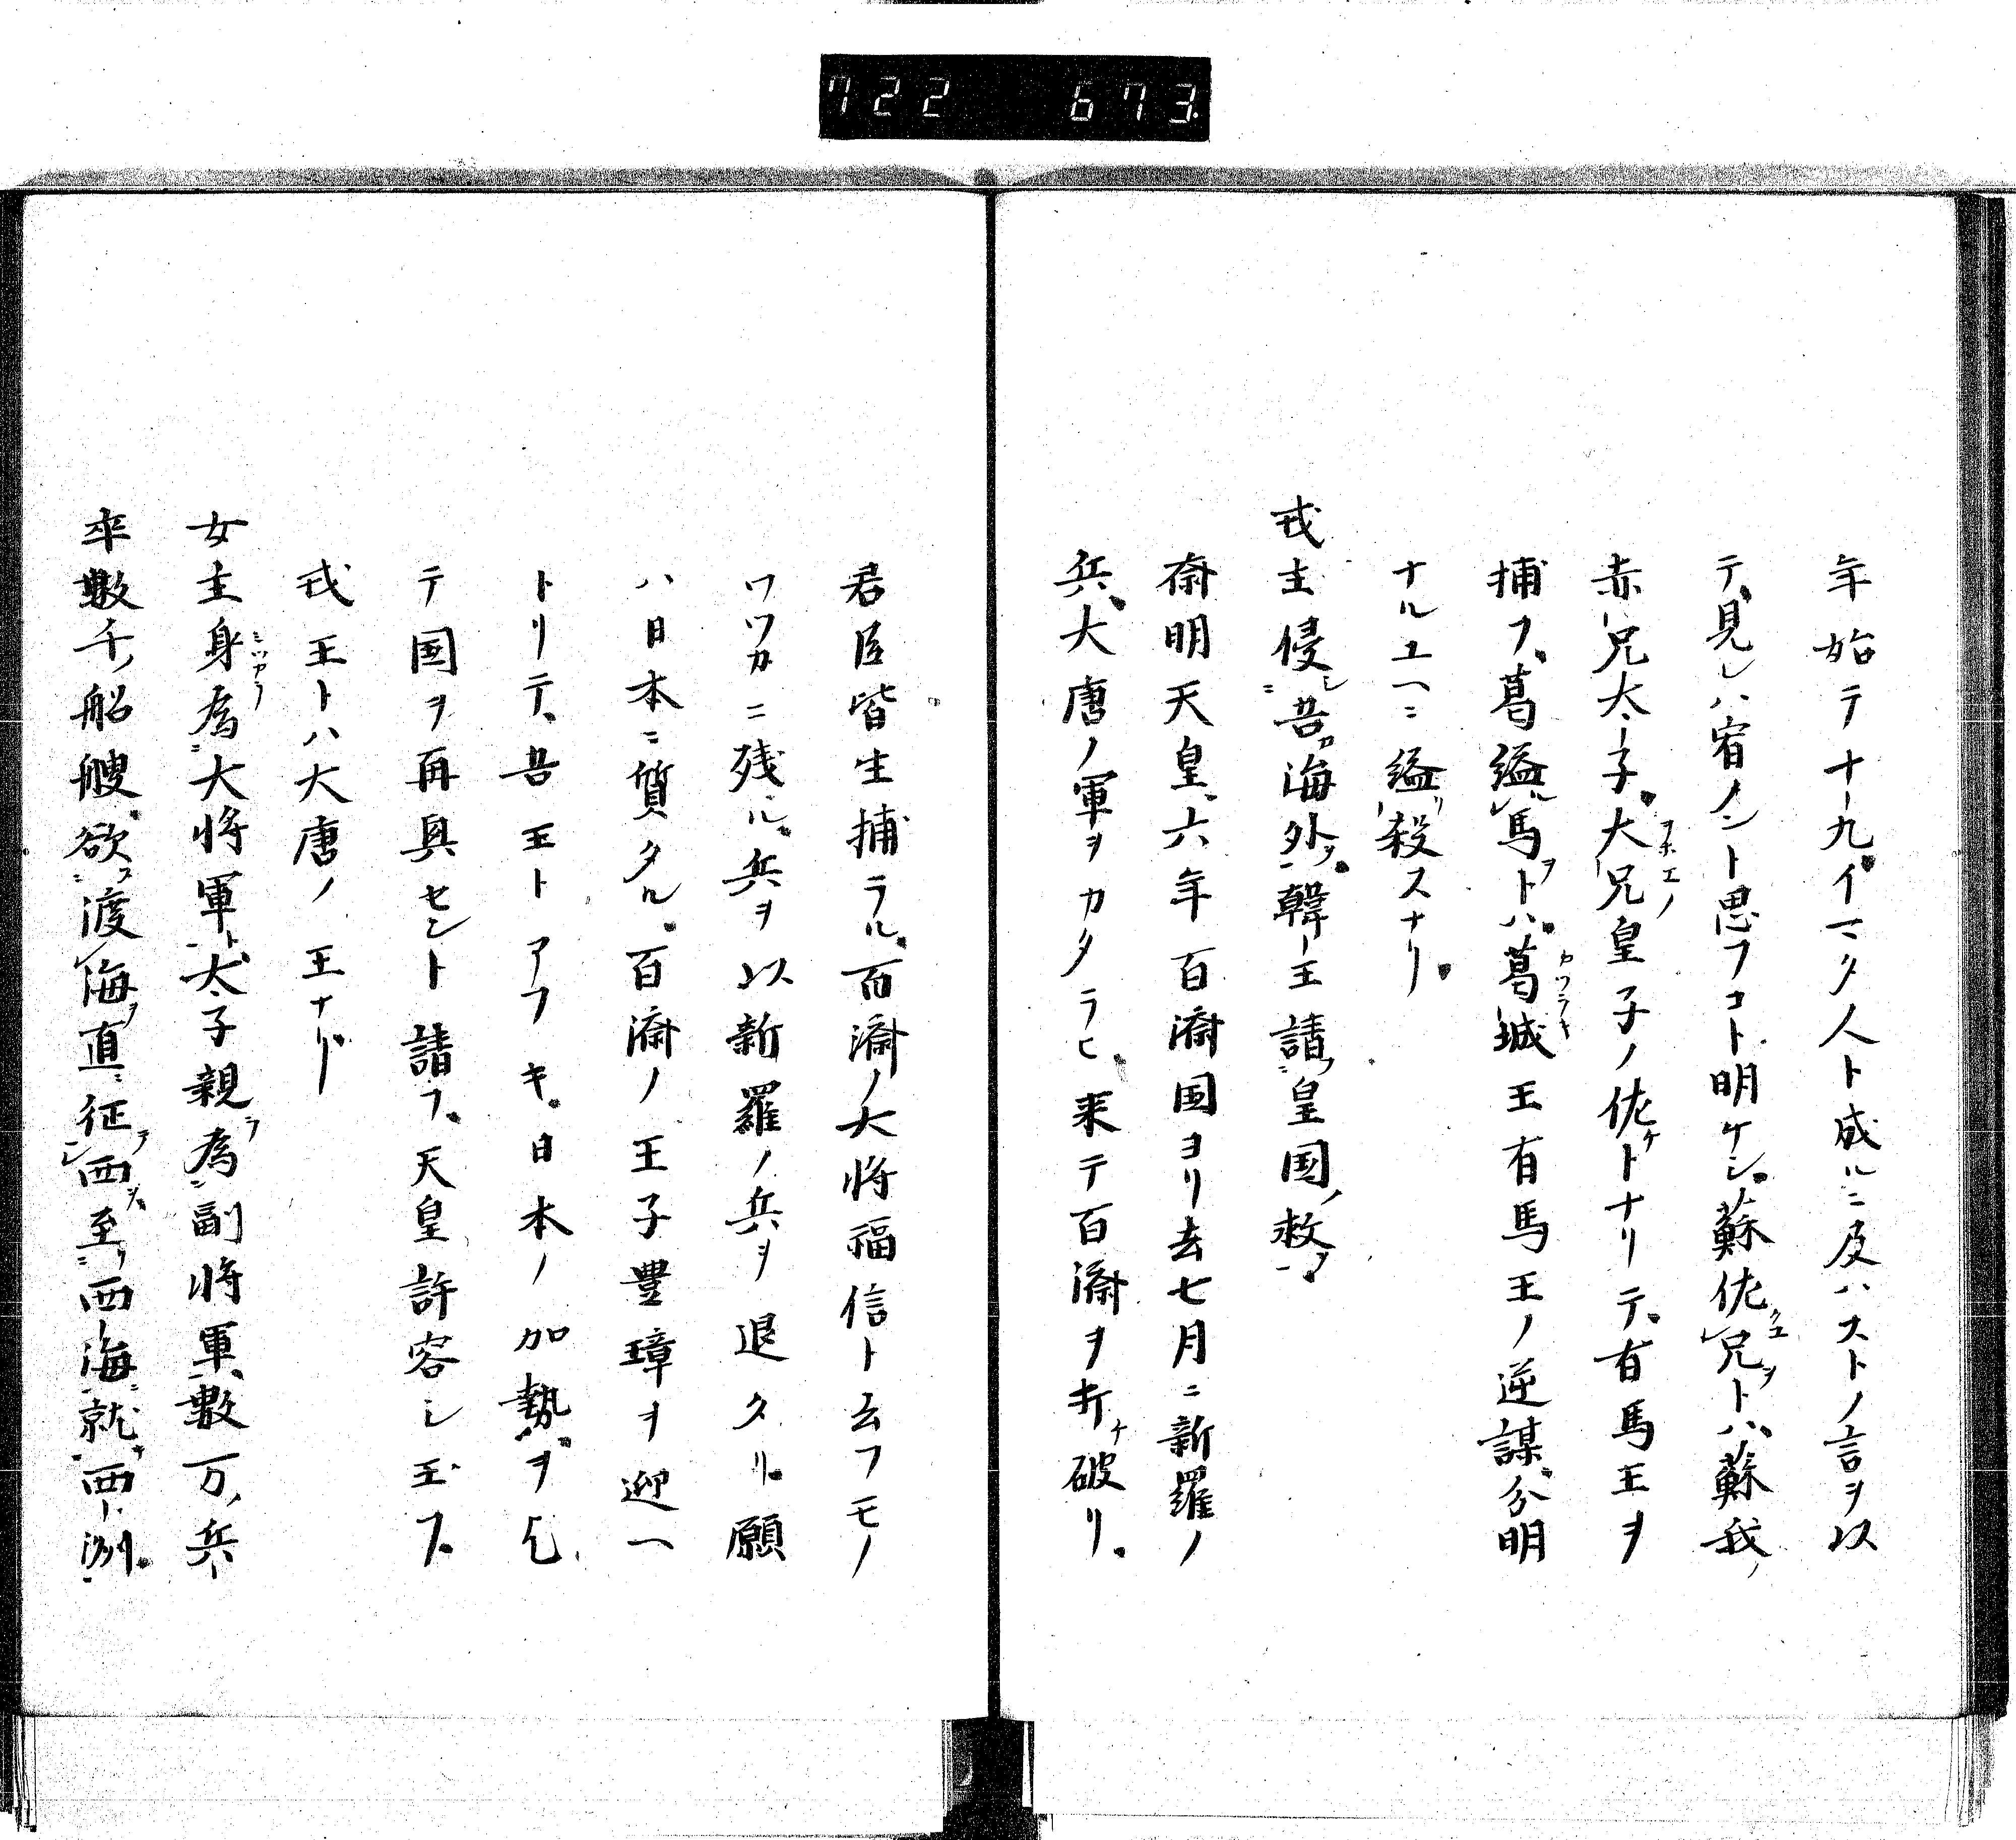 722 673
年始テ十九イマタ人ト成ルニ及ハストノ言ヲ以
テ見レハ宥ノント思フコト明ケシ蘇佐兄トハ蘇我ノ
赤兄太子大兄皇子ノ佐ケトナリテ有馬王ヲ
捕フ葛縊馬トハ葛城王有馬王ノ逆謀分明
ナルユヘニ縊リ殺スナリ
戎主侵吾海外韓王請皇国救
斎明天皇六年百済国ヨリ去七月ニ新羅ノ
兵大唐ノ軍ヲカタラヒ来テ百済ヲ打ケ破リ
君臣皆生捕ラル百済ノ大将福信ト云フモノ
ワツカニ残ル兵ヲ以新羅ノ兵ヲ退クリ願
ハ日本ニ質タル百済ノ王子豊璋ヲ迎ヘ
トリテ吾王トアフキ日本ノ加勢ヲ乞
テ国ヲ再興セント請フ天皇許容シ玉フ
戎王トハ大唐ノ王ナリ
女主身為大将軍太子親為副将軍数万兵
卒数千船艘欲渡海直征西至西海就西洲